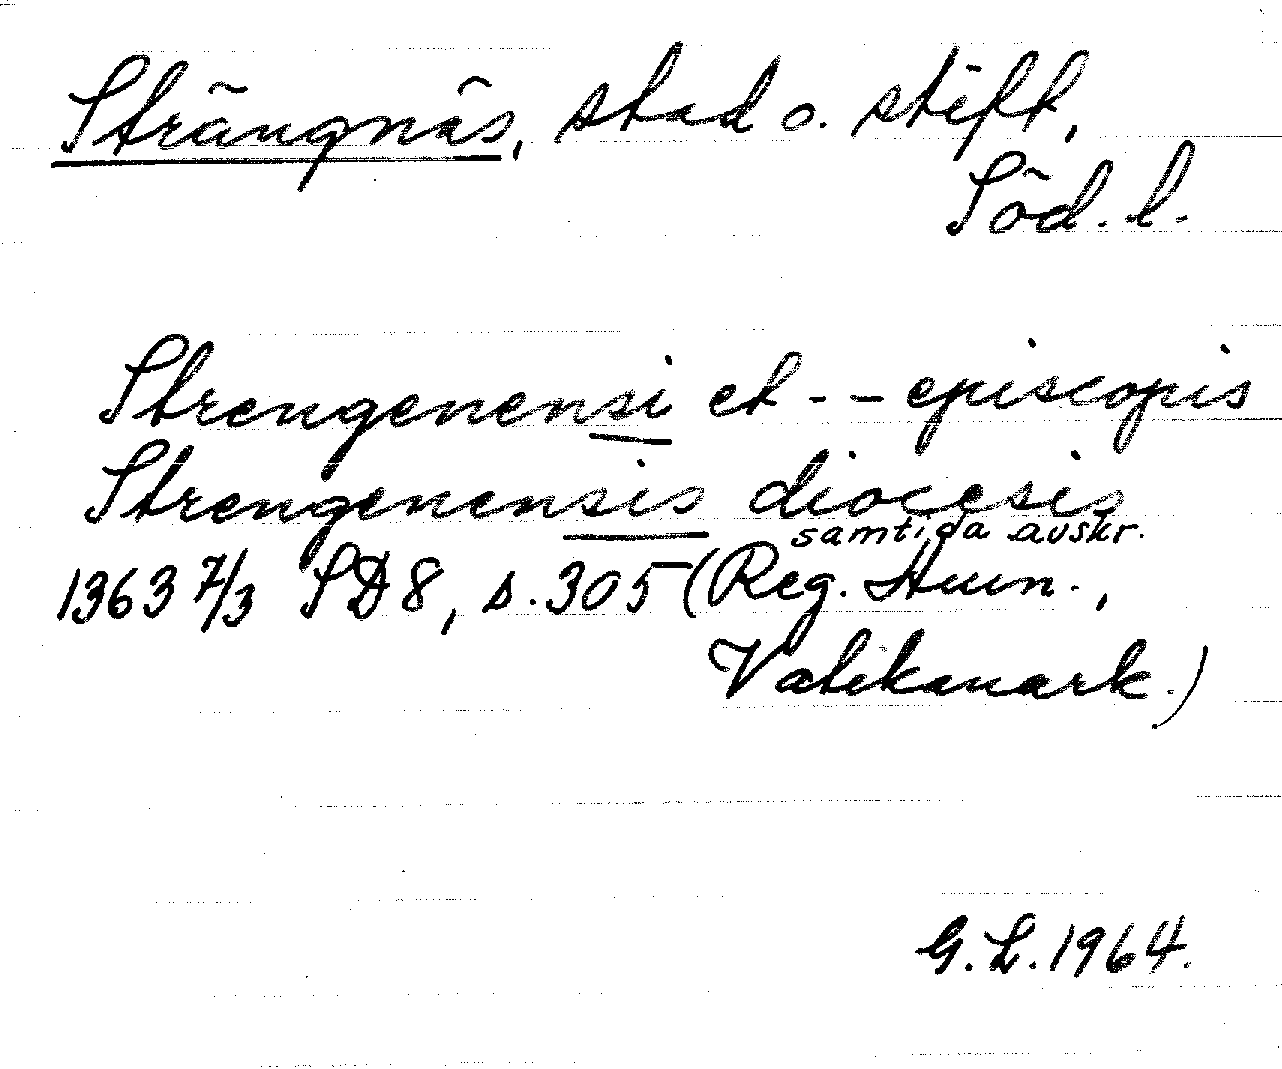 Strängnäs, stad o. stift,
Söd. l.
Strengenensi et - - episcopis
Strengenensis diocesis
samtida avskr.
1363 7/3 SD 8, s. 305 (Reg. Avin.,
Vatikanark.)
G. L. 1964.